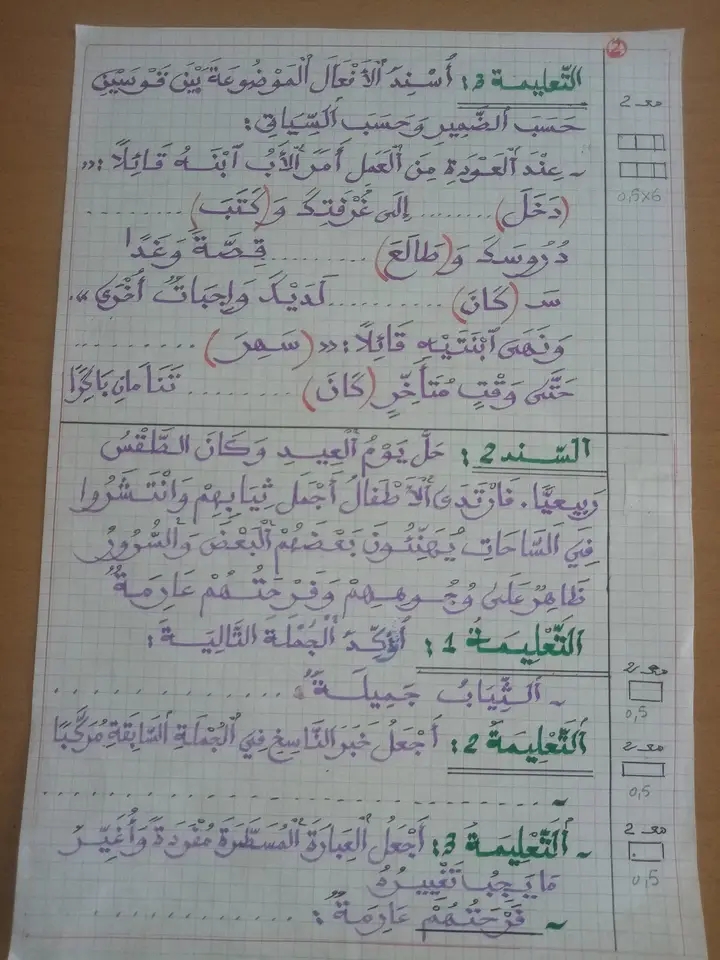 2
التّعليمة 3: أُسْنِدُ الْأَفْعَالَ الْمَوْضُوعَةَ بَيْنَ قَوْسَيْنِ
مع 2
حَسَبَ الضَّمِيرِ وَحَسَبَ السِّيَاقِ:
~ عِنْدَ الْعَوْدَةِ مِنَ الْعَمَلِ أَمَرَ الْأَبُ ابْنَهُ قَائِلًا: «
0,5x6
(دَخَلَ) ........ إِلَى غُرْفَتِكَ وَ(كَتَبَ) ..........
دُرُوسَكَ وَ(طَالَعَ) .......... قِصَّةً وَغَدًا
سَـ (كَانَ) .......... لَدَيْكَ وَاجِبَاتٌ أُخْرَى».
وَنَهَى ابْنَتَيْهِ قَائِلًا: «(سَهِرَ) ..........
حَتَّى وَقْتٍ مُتَأَخِّرٍ (كَانَ) .......... تَنَامَانِ بَاكِرًا
السّند 2: حَلَّ يَوْمُ الْعِيدِ وَكَانَ الطَّقْسُ
رَبِيعِيًّا. فَارْتَدَى الْأَطْفَالُ أَجْمَلَ ثِيَابِهِمْ وَانْتَشَرُوا
فِي السَّاحَاتِ يُهَنِّئُونَ بَعْضُهُمْ الْبَعْضَ وَالسُّرُورُ
ظَاهِرٌ عَلَى وُجُوهِهِمْ وَفَرْحَتُهُمْ عَارِمَةٌ
التَّعْلِيمَةُ 1: أُؤَكِّدُ الْجُمْلَةَ التَّالِيَةَ:
مع 2
~ الثِّيَابُ جَمِيلَةٌ: ..............
0,5
التَّعْلِيمَةُ 2: أَجْعَلُ خَبَرَ النَّاسِخِ فِي الْجُمْلَةِ السَّابِقَةِ مُرَكَّبًا
مع 2
~ ........................
0,5
~ التَّعْلِيمَةُ 3: أَجْعَلُ الْعِبَارَةَ الْمُسَطَّرَةَ مُفْرَدَةً وَأُغَيِّرُ
مع 2
مَا يَجِبُ تَغْيِيرُهُ
0,5
~ فَرْحَتُهُمْ عَارِمَةٌ: ..............